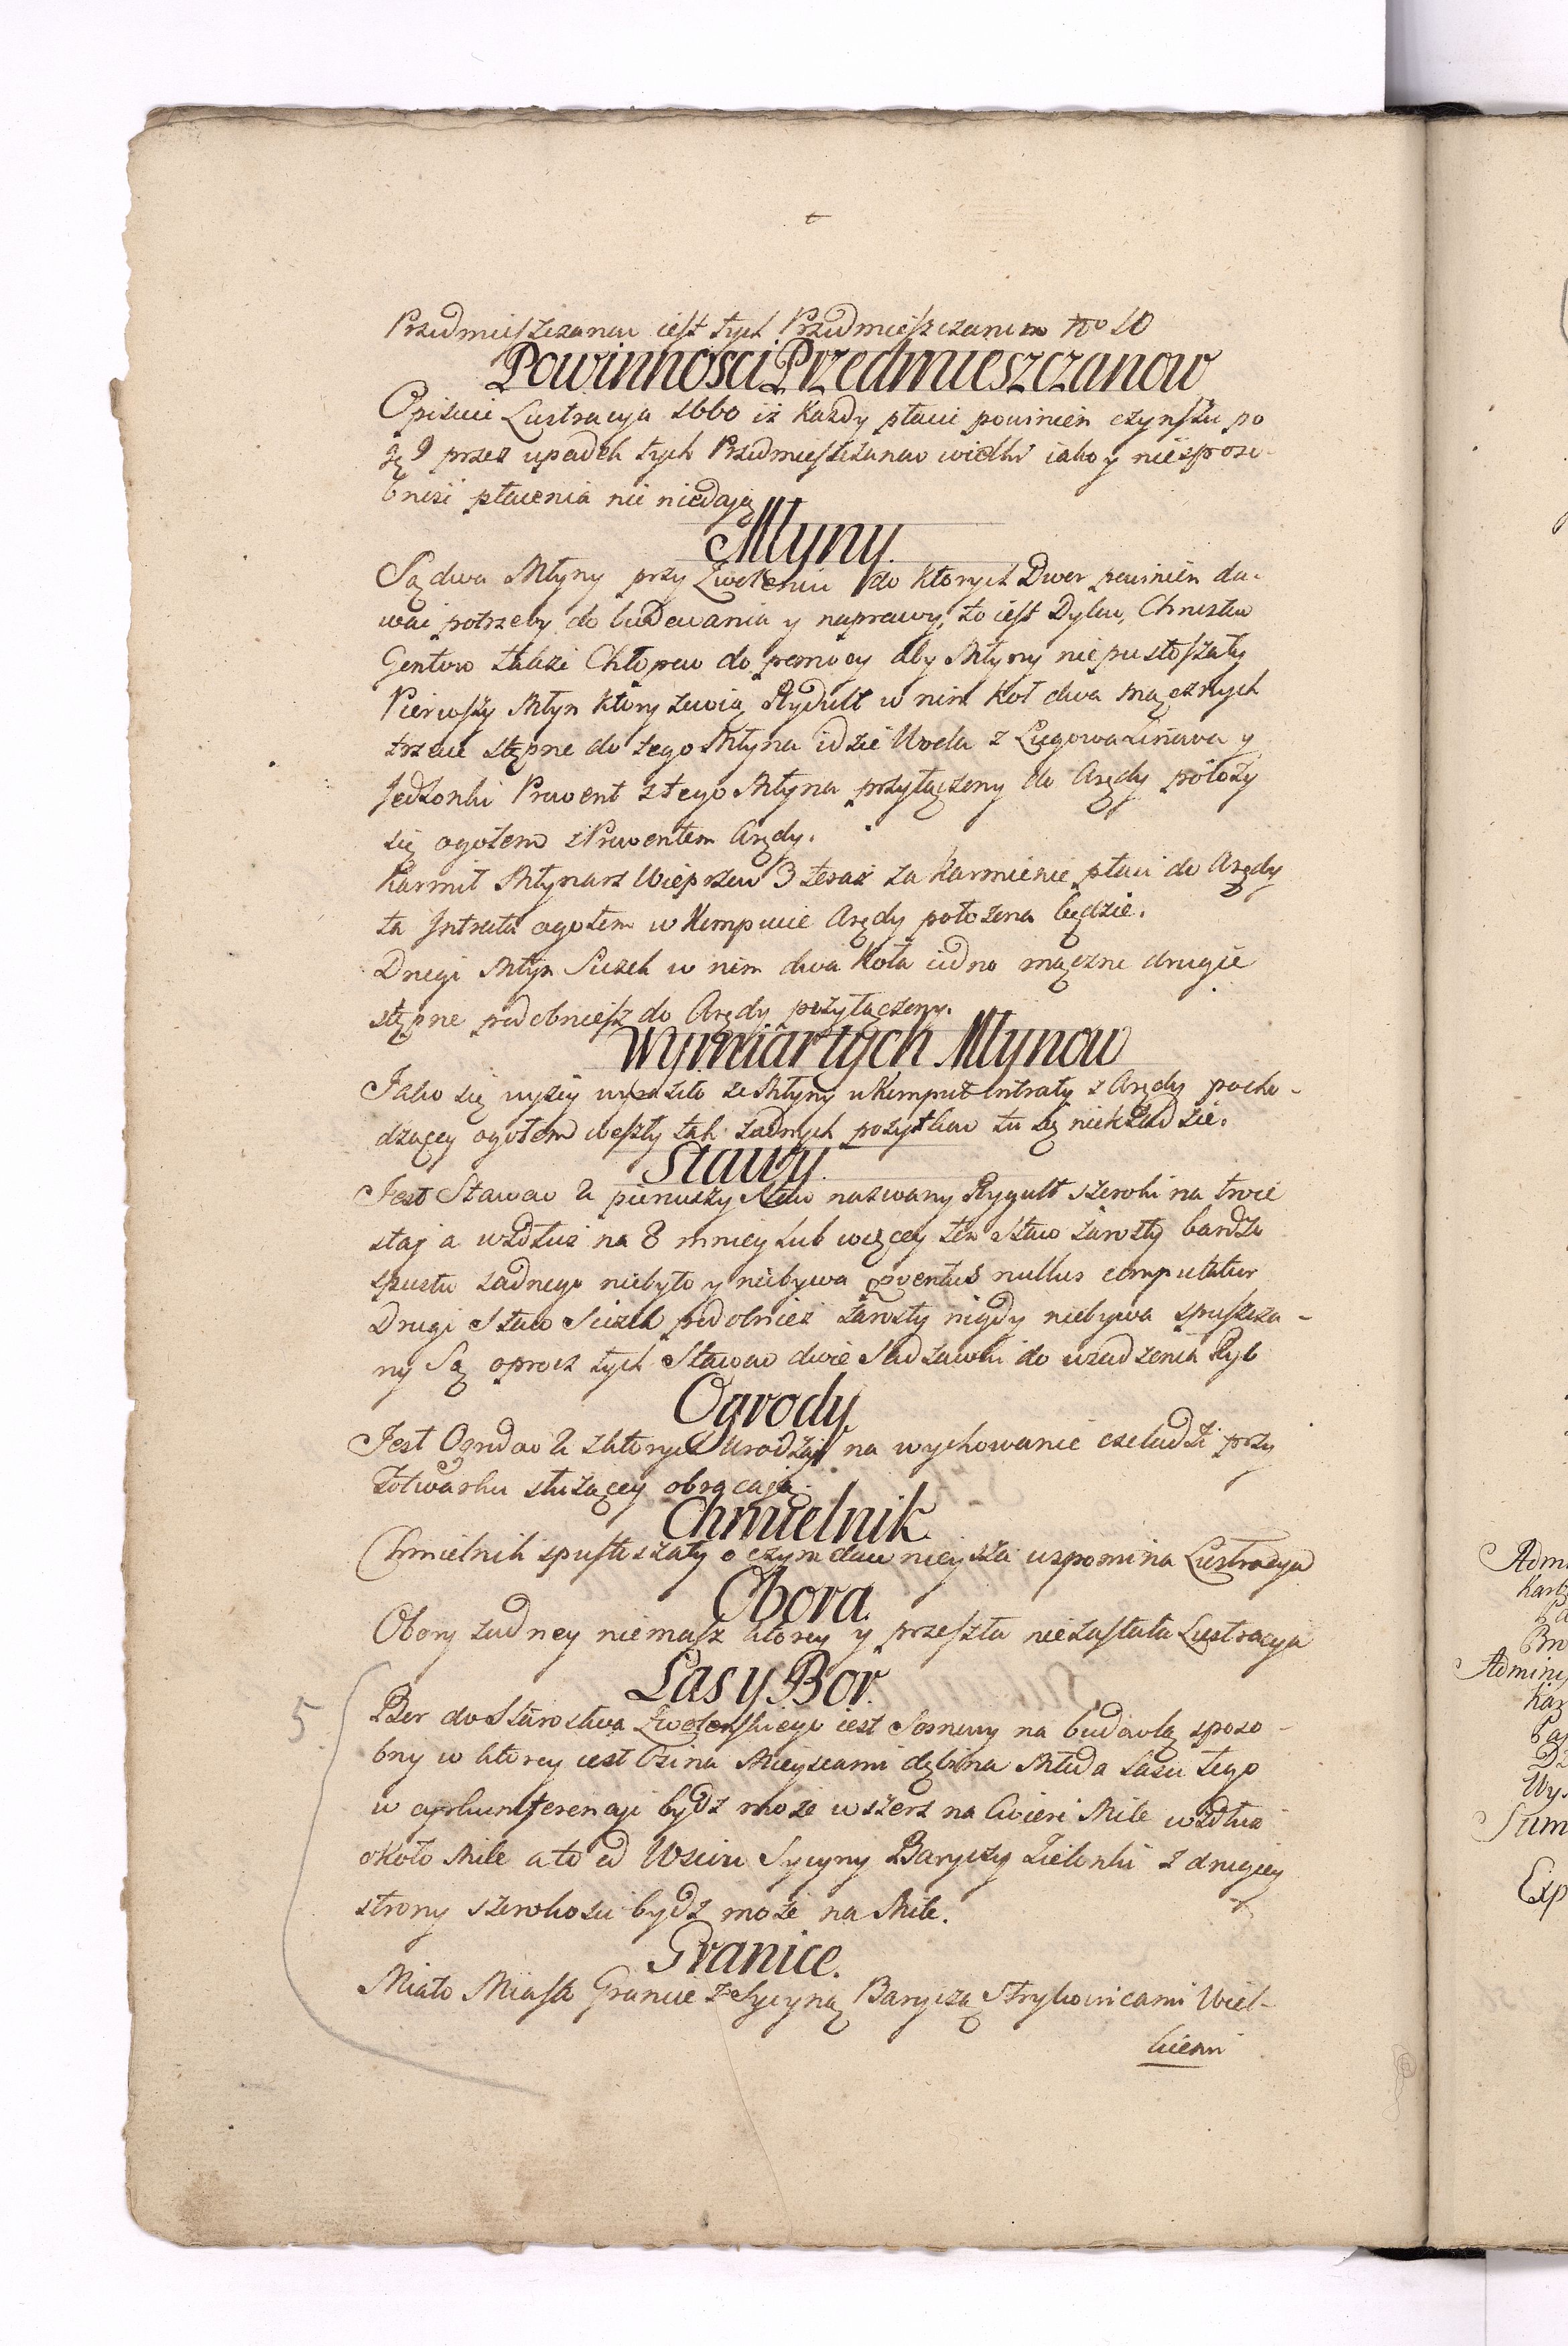 Przedmieszczanow iest tych Przedmieszczanow No 10
Powinności Przedmieszczanow
Opisuie Lustracya 1660 iż każdy płacić powinien czynszu po
g 9 przez upadek tych Przedmieszczanow wielki iako y niesposo-
bność płacenia nic niedaią
Młyny.
Są dwa Młyny przy Zwoleniu do ktorych Dwor powinien da-
wać potrzeby do budowania y naprawy, to iest Dylow, Chrustu
Gontow także Chłopow do pomocy aby Młyny niepustoszały
Pierwszy Młyn ktory zowią Rygult w nim koł dwa mącznych
trzecie stępne do tego Młyna idzie Woda z Ługowa Linawa y
Jedlonki Prowent z tego Młyna przyłączony do Arędy położy
się ogołem z Prowentem Arędy.
Karmił Młynarz Wieprzow 3 teraz za karmienie płaci do Arędy
ta Intrata ogołem w Kompucie Arędy położona będzie.
Drugi Młyn Siczek w nim dwa koła iedno mączne drugie
stępne podobniesz do Arędy przyłączony.
Wymiar tych Młynow
Jako się wyżey wyraziło że Młyny w Komput Intraty z Arędy pocho-
dzącey ogołem weszły tak żadnych pożytkow tu się niekładzie.
Stawy.
Jest Stawow 2 pierwszy Staw nazwany Rygult szeroki na troie
staj a wzdłuż na 8 mniey lub więcey ten Staw zarosły bardzo
spustu żadnego niebyło y niebywa proventus nullus computatur
Drugi Staw Siczek podobniesz zarosły nigdy niebywa spuszcza-
ny Są oprocz tych Stawow dwie Sadzawki do wsadzenia Ryb
Ogrody
Jest Ogrodow 2 z ktorych Urodzaj na wychowanie czeladzi przy
Folwarku służącey obracaią.
Chmielnik.
Chmielnik spustoszały o czym dawnieysza wspomina Lustracya
Obora.
Obory żadney niemasz ktorey y przeszła niezastała Lustracya
Las y Bor.
5
Bor do Starostwa Zwolenskiego iest Sosnowy na budowlą sposo-
bny w ktorey iest Osina Mieyscami dębina Młoda Lasu tego
w cyrkumferencyi bydz może wszerz na ćwierć Mile wzdłuż
około Mile a to od Wsiow Sycyny Baryczy Zielonki z drugiey
strony szerokości bydz może na Mile.
Granice.
Miało Miasto Granice z Sycyną Baryczą Strykowicami Wiel-
kiemi